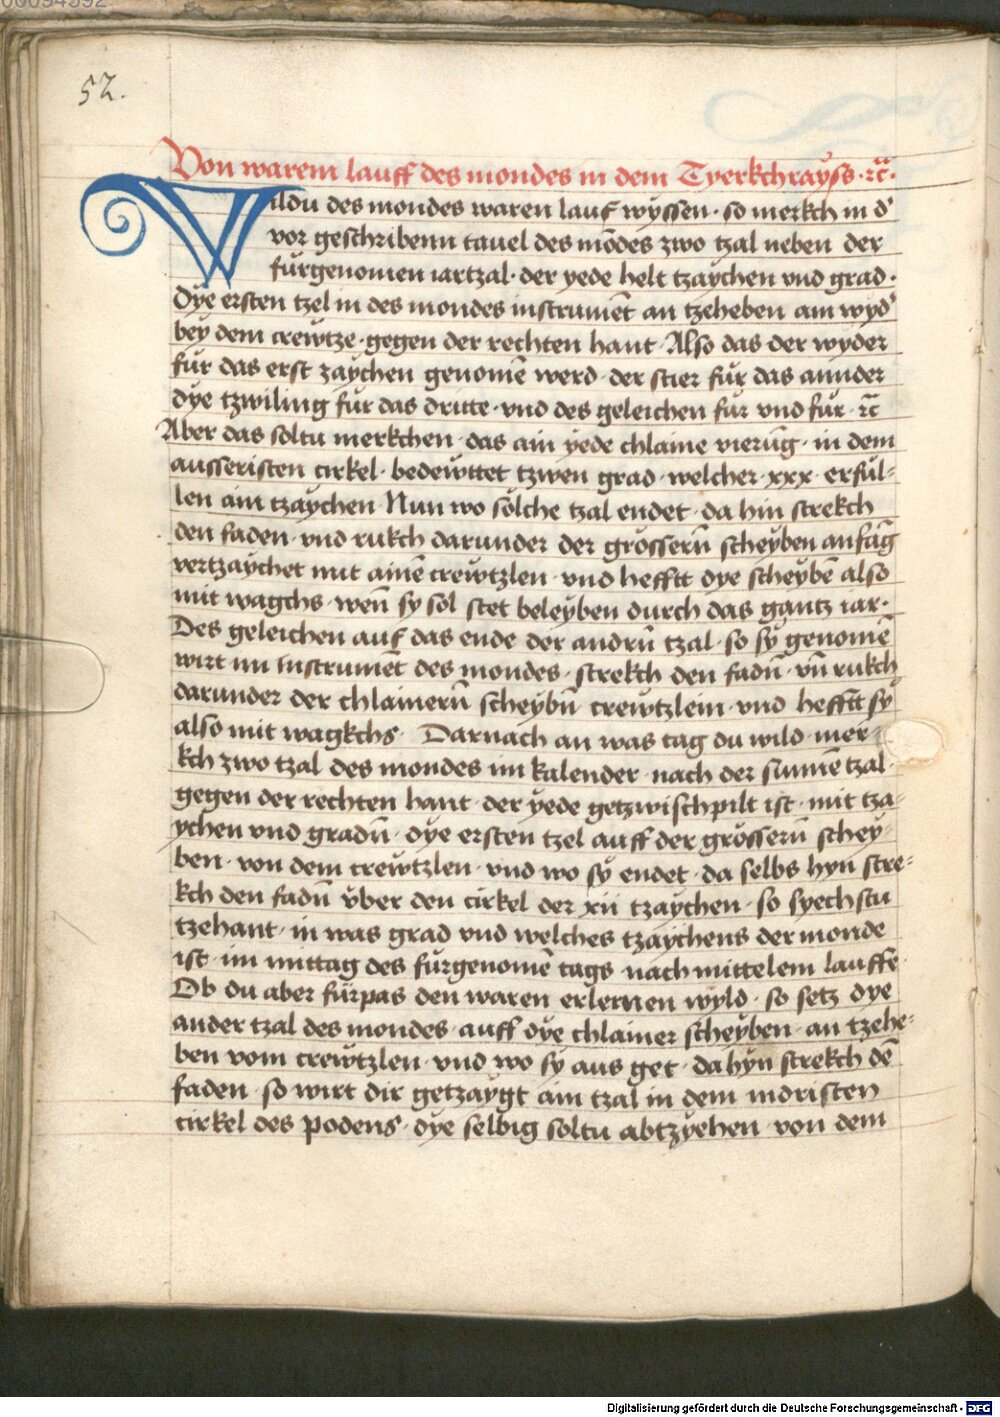 00094592
52.
Von warem lauff des mondes in dem Tyerkchrayss · rc̄ ·
Wildu des mondes waren lauf wyssen · so merkch in d'
vor geschribenn tauel des mōdes zwo tzal neben der
fürgenomen iartzal · der yede helt tzaychen vnd grad ·
Dye ersten tzel in des mondes instrumēt an tzeheben am wyd'
bey dem crewtze · gegen der rechten hant · Also das der wyder
für das erst zaychen genomē werd · der stier für das annder
dye tzwiling für das dritte · vnd des geleichen für vnd für · rc̄
Aber das soltu merkchen · das ain yede chlaine vierūg · in dem
ausseristen cirkel · bedewttet tzwen grad · welcher · xxx · erfül-
len ain tzaychen Nun wo solche tzal endet · da hin strekch
den faden · vnd rukch darunder der grössern̄ scheyben anfāg
vertzaychet mit ainē crewtzlen · vnd hefftt dye scheybē also
mit wagchs · wen̄ sy sol stet beleyben durch das gantz iar ·
Des geleichen auf das ende der andrn̄ tzal · so sy genomē
wirt im instrumēt des mondes · strekch den fadn̄ · vn̄ rukch
darunder der chlainern̄ scheybn̄ crewtzlein · vnd hefftt sy
also mit wagkchs · Darnach an was tag du wild · mer-
kch zwo tzal des mondes im kalender · nach der sunnē tzal ·
gegen der rechten hant · der yede getzwischpilt ist · mit tza-
ychen vnd gradn̄ · dye ersten tzel auff der grössern̄ schey-
ben · von dem crewtzlen · vnd wo sy endet · da selbs hyn stre-
kch den fadn̄ vber den cirkel der xii tzaychen · so syechstu
tzehant · in was grad vnd welches tzaychens der monde
ist · im mittag des fürgenomē tags · nach mittelem lauffe
Ob du aber fürpas den waren erlernen wyld · so setz dye
ander tzal des mondes · auff dye chlainer scheyben · an tzehe-
ben vom crewtzlen · vnd wo sy aus get · da hyn strekch dē
faden · so wirt dir getzaygt ain tzal in dem indristen
cirkel des podens · dye selbig soltu abtzyehen von dem
Digitalisierung gefördert durch die Deutsche Forschungsgemeinschaft - DFG